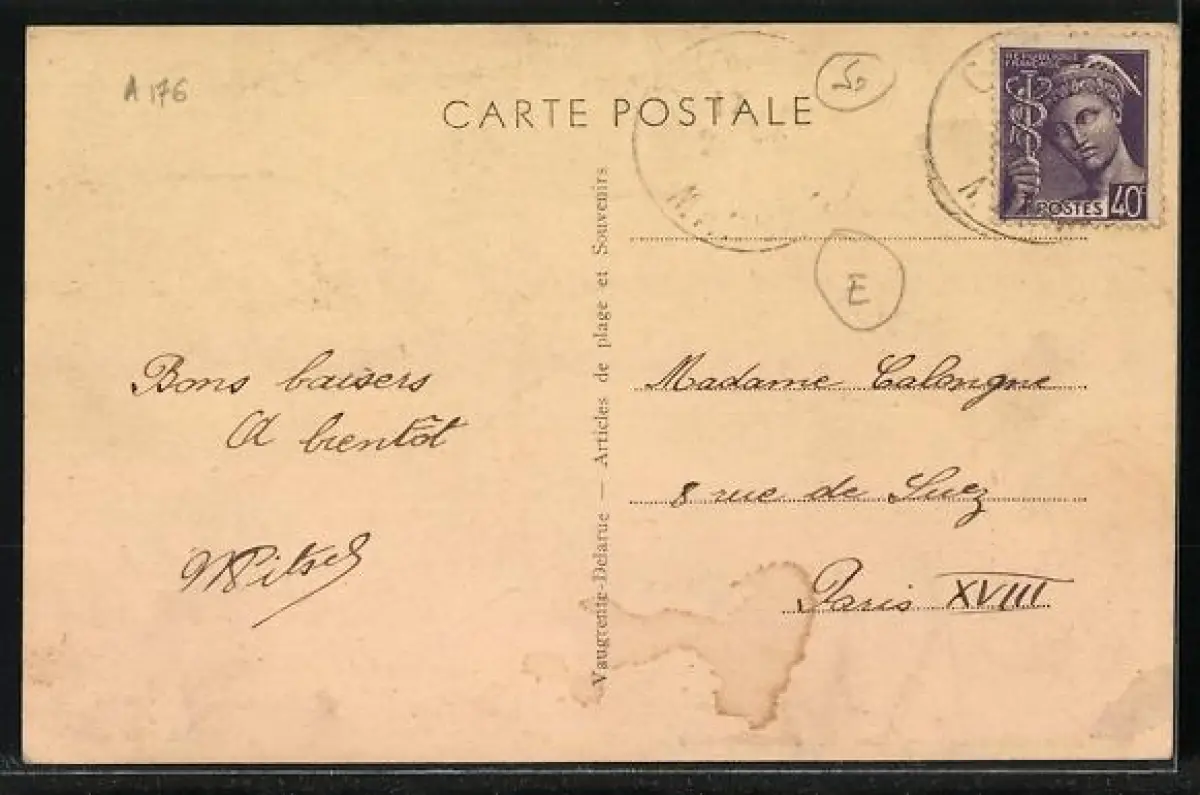 A 176
CARTE POSTALE
50
RÉPUBLIQUE
FRANÇAISE
POSTES 40c
E
Vaugrente-Delarue — Articles de plage et Souvenirs
Bons baisers
A bientôt
Madame Calongne
8 rue de Suez
Paris XVIII